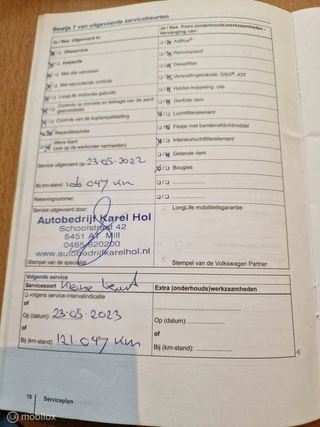 Bewijs 7 van uitgevoerde servicebeurten
Ja / Nee Uitgevoerd is:
Olieservice
Inspectie
Met alle verversen
Met aanvullende controle
LongLife motorolie gebruikt
Controle op corrosie en lekkage van de aandrijfassen
Controle van de koplampafstelling
Reparatieadvies
Wens klant
(ook op de werkorder vermelden)
Service uitgevoerd op: 23-05-2022
Bij km-stand: 106 047 km
Rekeningnummer:
Service uitgevoerd door:
Autobedrijf Karel Hol
Schoolstraat 42
5451 AT Mill
0485-820200
www.autobedrijfkarelhol.nl
Stempel van de specialist
Ja / Nee Extra (onderhouds)werkzaamheden -
Vervanging van:
AdBlue®
Remvloeistof
Dieselfilter
Versnellingsbakolie: DSG®, ATF
Haldex-koppeling olie
Getande riem
Luchtfilterelement
Flesje met bandenafdichtmiddel
Interieurluchtfilterelement
Getande riem
Bougies
LongLife mobiliteitsgarantie:
Stempel van de Volkswagen Partner
Volgende service
Servicesoort Kleine beurt
volgens service-intervalindicatie
of
Op (datum): 23-05-2023
of
Bij (km-stand): 121.047 km
Extra (onderhouds)werkzaamheden
Op (datum):
of
Bij (km-stand):
18 Serviceplan
© mobilox